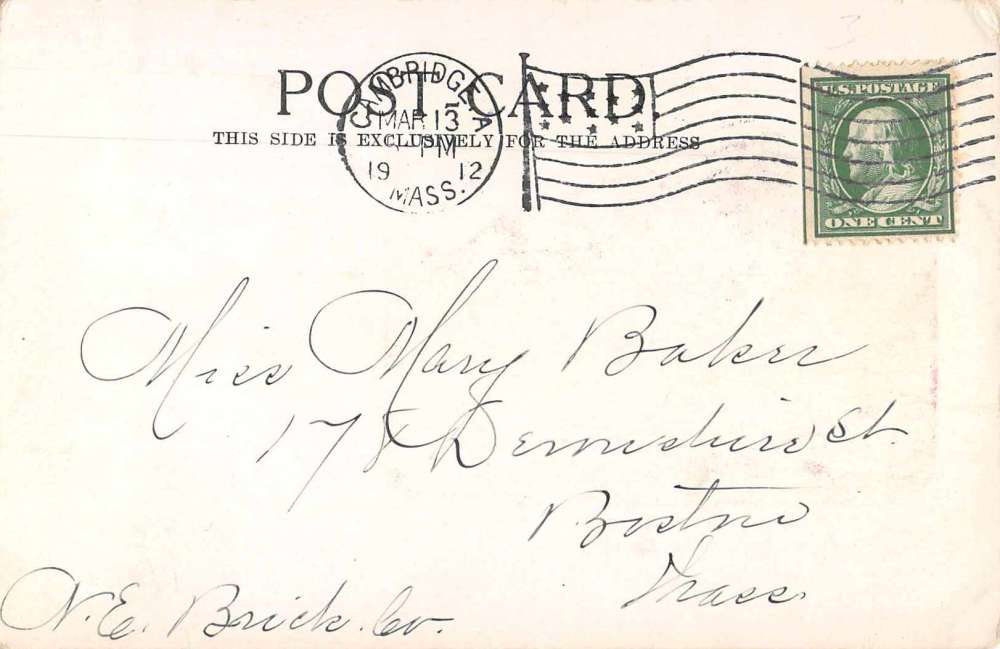 POST CARD
THIS SIDE IS EXCLUSIVELY FOR THE ADDRESS
CAMBRIDGE A
MAR 13
PM
19 12
MASS.
U.S. POSTAGE
ONE CENT
Miss Mary Baker
178 Devonshire St.
Boston
Mass.
N.E. Brick. Co.